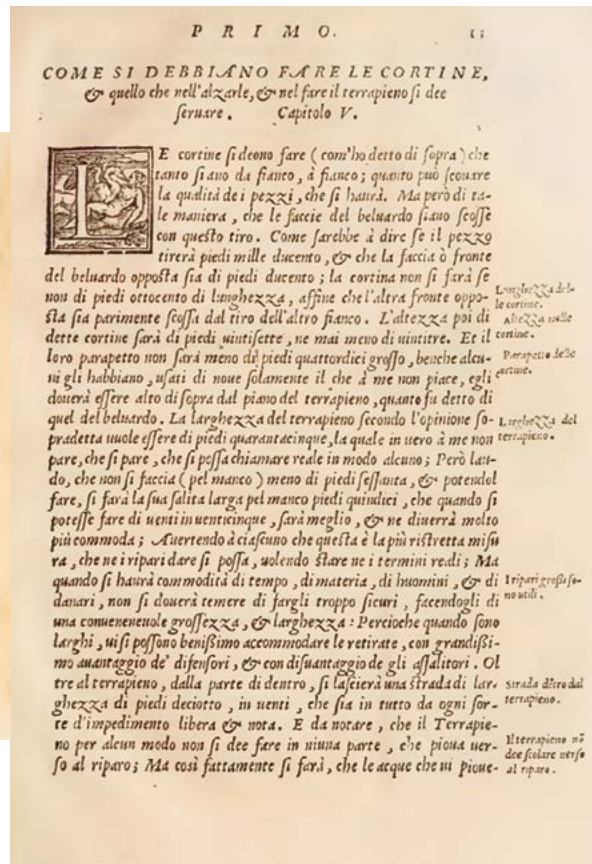 PRIMO. 13
COME SI DEBBIANO FARE LE CORTINE,
& quello che nell'alzarle, & nel fare il terrapieno si dee
seruare. Capitolo V.
LE cortine si deono fare (com'ho detto di sopra) che
tanto siano da fianco, à fianco; quanto può scouare
la qualità de i pezzi, che si haurà. Ma però di ta-
le maniera, che le faccie del beluardo siano scosse
con questo tiro. Come sarebbe à dire se il pezzo
tirerà piedi mille ducento, & che la faccia ò fronte
del beluardo opposta sia di piedi ducento; la cortina non si farà se
non di piedi ottocento di lunghezza, affine che l'altra fronte oppo-
sta sia parimente scossa dal tiro dell'altro fianco. L'altezza poi di
dette cortine sarà di piedi uintisette, ne mai meno di uintitre. Et il
loro parapetto non sarà meno di piedi quattordici grosso, benche alcu-
ni gli habbiano, usati di noue solamente il che à me non piace, egli
douerà essere alto di sopra dal piano del terrapieno, quanto fu detto di
quel del beluardo. La larghezza del terrapieno secondo l'opinione so-
pradetta uuole essere di piedi quarantacinque, la quale in uero à me non
pare, che si pare, che si possa chiamare reale in modo alcuno; Però lau-
do, che non si faccia (pel manco) meno di piedi sessanta, & potendol
fare, si farà la sua salita larga pel manco piedi quindici, che quando si
potesse fare di uenti in uenticinque, sarà meglio, & ne diuerrà molto
più commoda; Auertendo à ciascuno che questa è la più ristretta misu
ra, che ne i ripari dare si possa, uolendo stare ne i termini reali; Ma
quando si haurà commodità di tempo, di materia, di huomini, & di
danari, non si douerà temere di fargli troppo sicuri, facendogli di
una conueneneuole grossezza, & larghezza: Percioche quando sono
larghi, ui si possono benißimo accommodare le retirate, con grandißi-
mo auantaggio de' difensori, & con disuantaggio de gli assalitori. Ol
tre al terrapieno, dalla parte di dentro, si lascierà una strada di lar-
ghezza di piedi deciotto, in uenti, che sia in tutto da ogni sor-
te d'impedimento libera & nota. E da notare, che il Terrapie-
no per alcun modo non si dee fare in niuna parte, che pioua uer-
so al riparo; Ma così fattamente si farà, che le acque che ui pioue-
Lunghezza del-
le cortine.
Altezza nelle
cortine.
Parapetto delle
cortine.
Larghezza del
terrapieno.
I ripari großi so-
no utili.
Strada dẽtro dal
terrapieno.
Il terrapieno nõ
dee scolare uerso
al riparo.